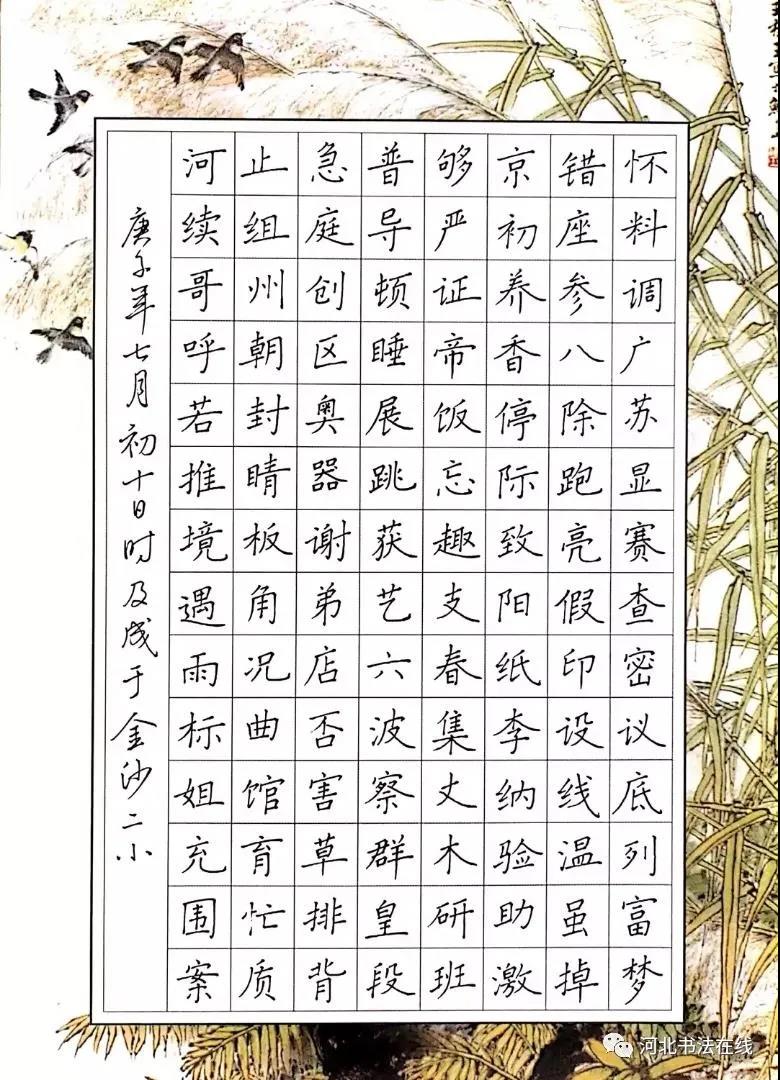 怀料调广苏显赛查密议底列富梦
错座参八除跑亮假印设线温虽掉
京初养香停际致阳纸李纳验助激
够严证帝饭忘趣支春集丈木研班
普导顿睡展跳获艺六波察群皇段
急庭创区奥器谢弟店否害草排背
止组州朝封睛板角况曲馆育忙质
河续哥呼若推境遇雨标姐充围案
庚子年七月初十日时及成于金沙二小
河北书法在线